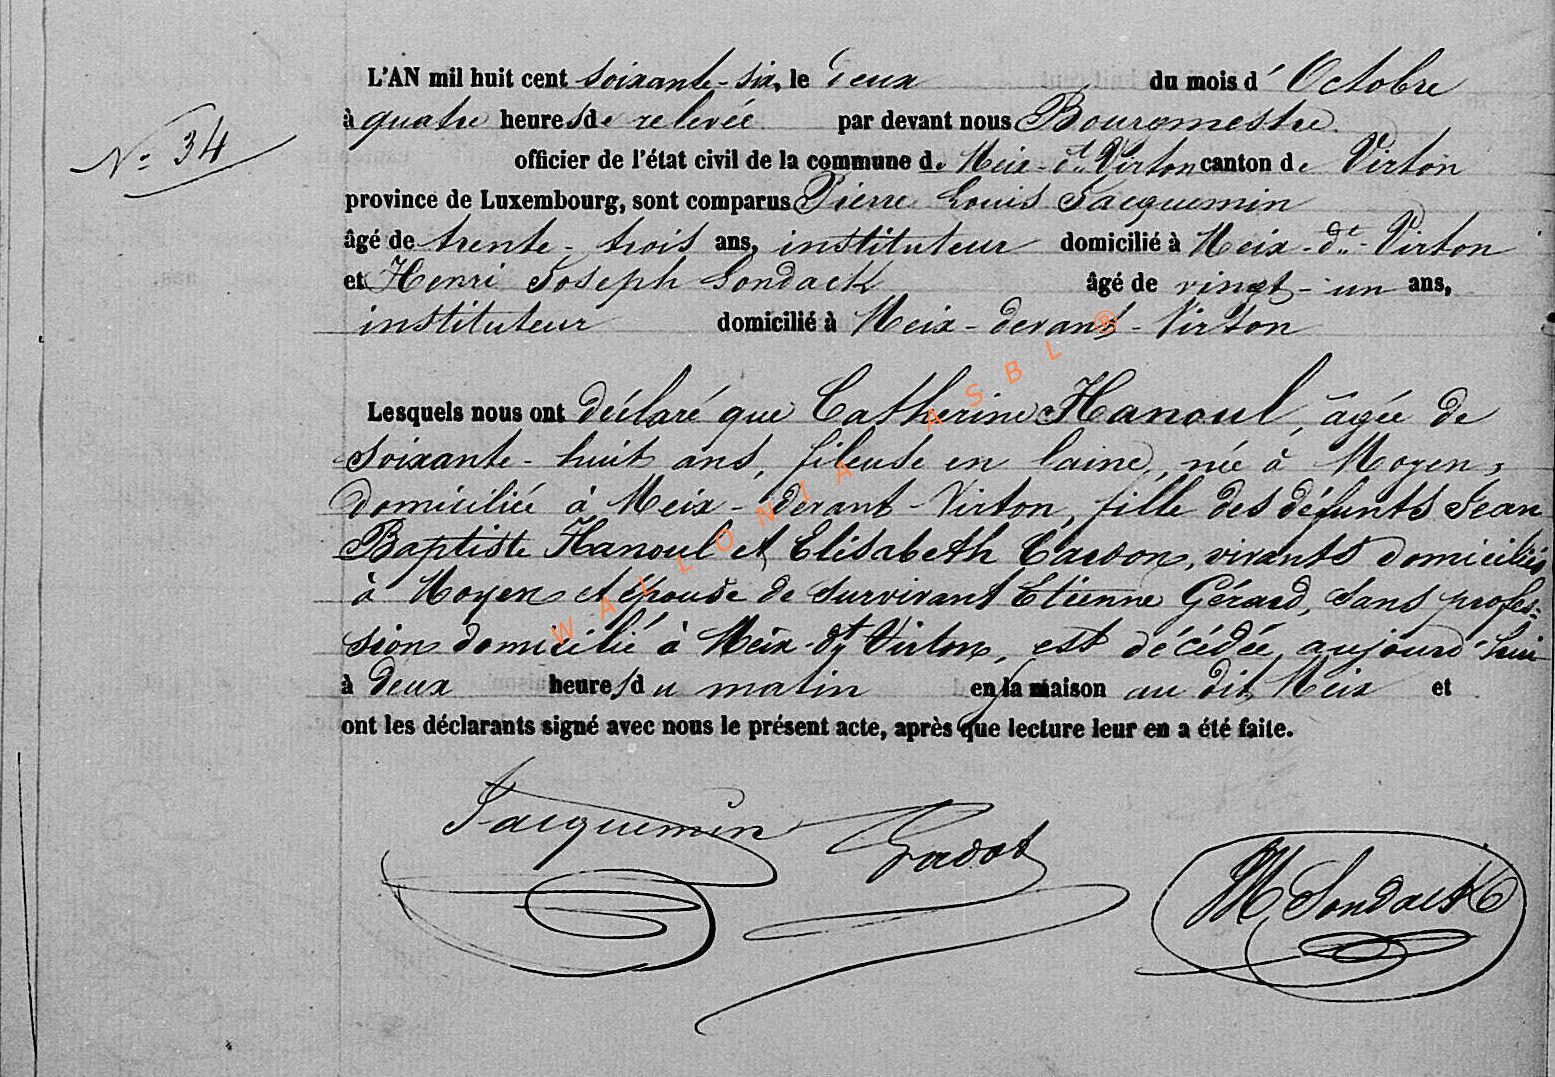 N° 34
L'AN mil huit cent soixante-six, le deux du mois d' Octobre
à quatre heures de relevée par devant nous Bourgmestre
officier de l'état civil de la commune de Meix-dt Virton canton de Virton
province de Luxembourg, sont comparus Pierre Louis Jacquemin
âgé de trente-trois ans, instituteur domicilié à Meix-dt-Virton
et Henri Joseph Sondack âgé de vingt-un ans,
instituteur domicilié à Meix-devant-Virton
Lesquels nous ont déclaré que Catherine Hanoul, âgée de
soixante-huit ans, fileuse en laine, née à Moyen,
domiciliée à Meix-devant-Virton, fille des défunts Jean
Baptiste Hanoul et Elisabeth Claeson, vivants domiciliés
à Moyen et épouse de survivant Etienne Gérard, sans profes-
sion domicilié à Meix-dt Virton, est décédée aujourd'hui
à deux heures du matin en la maison au dit Meix et
ont les déclarants signé avec nous le présent acte, après que lecture leur en a été faite.
Jacquemin Gadot
Sondack
WALLONIA ASBL ®